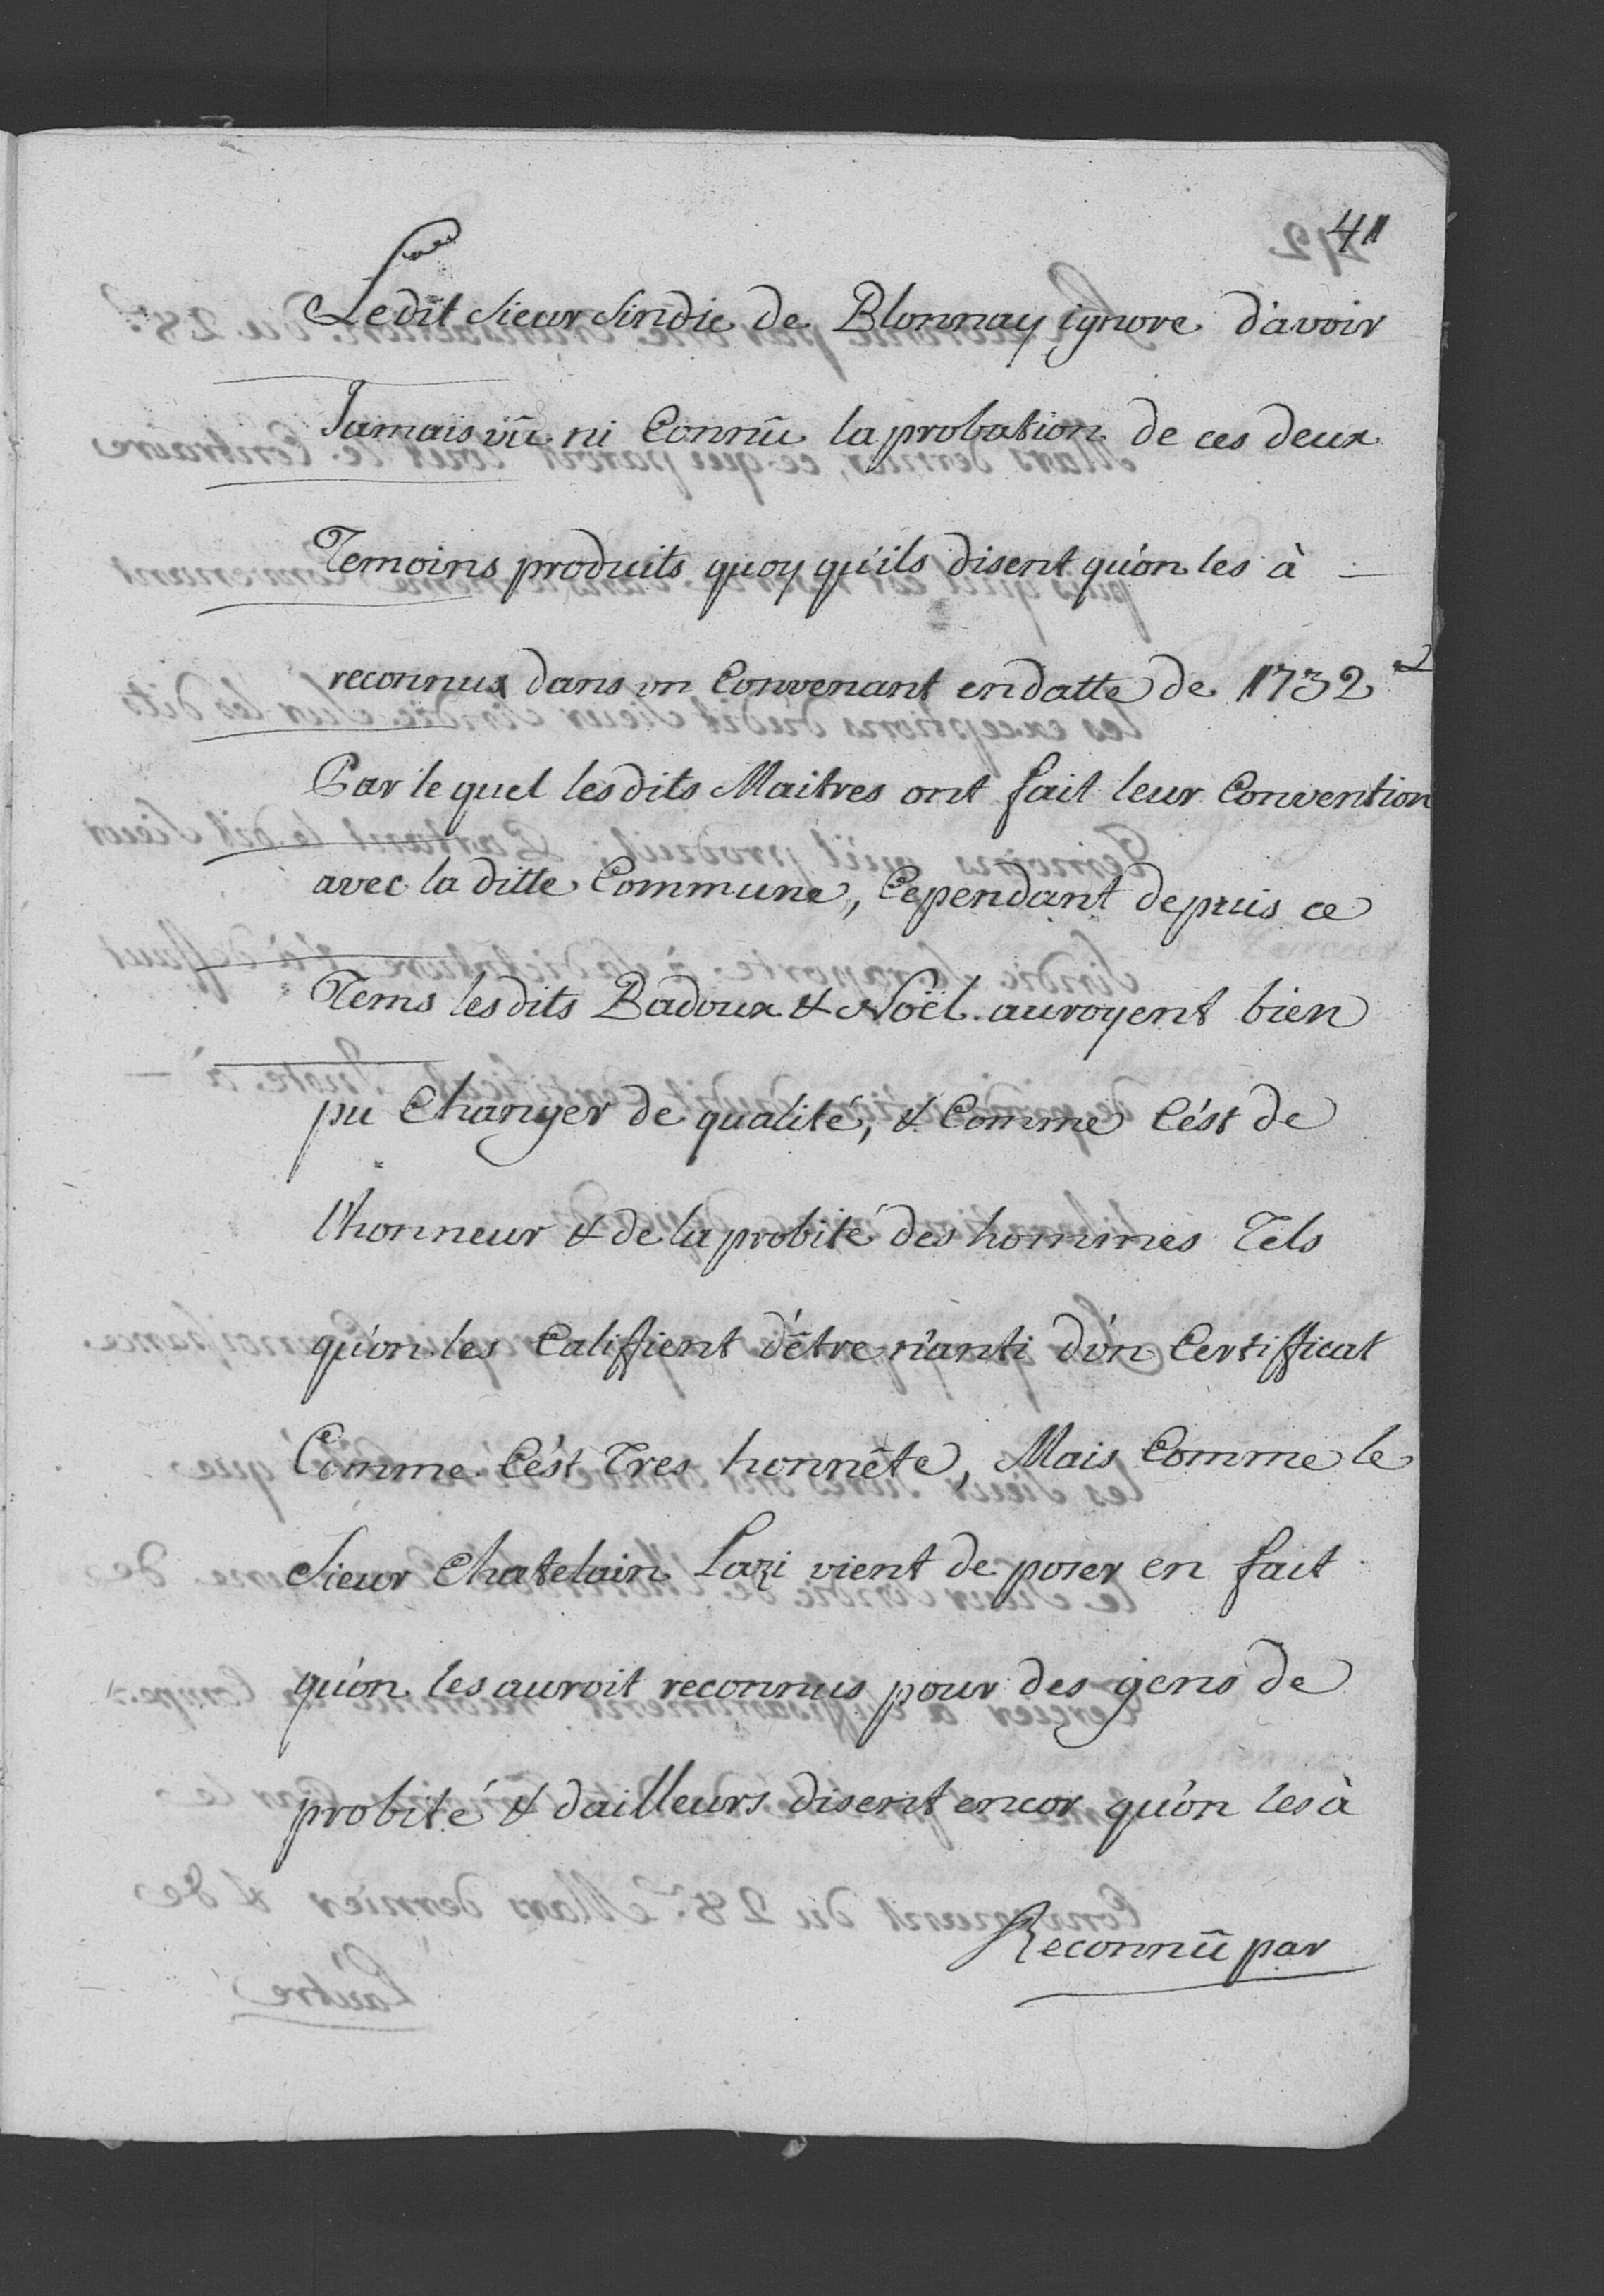 41
Ledit Sieur Sindic de Blonnay ignore d'avoir
Jamais vû ni Connû la probation de ces deux
Temoins produits quoy qu'ils disent qu'on les à —
reconnus dans un Convenant en datte de 1732
Par le quel les dits Maitres ont fait leur Convention
avec la ditte Commune, Cependant depuis ce
Tems les dits Badoux & Noël auroyent bien
pu Changer de qualité, & Comme C'ést de
l'honneur & de la probité des hommes Tels
qu'on les Califfient d'être nanti d'un Certifficat
Comme C'ést Tres honnête, Mais Comme le
Sieur Chatelain Lazi vient de poser en fait
qu'on les auroit reconnus pour des gens de
probité & dailleurs disent encor qu'on les à
Reconnû par